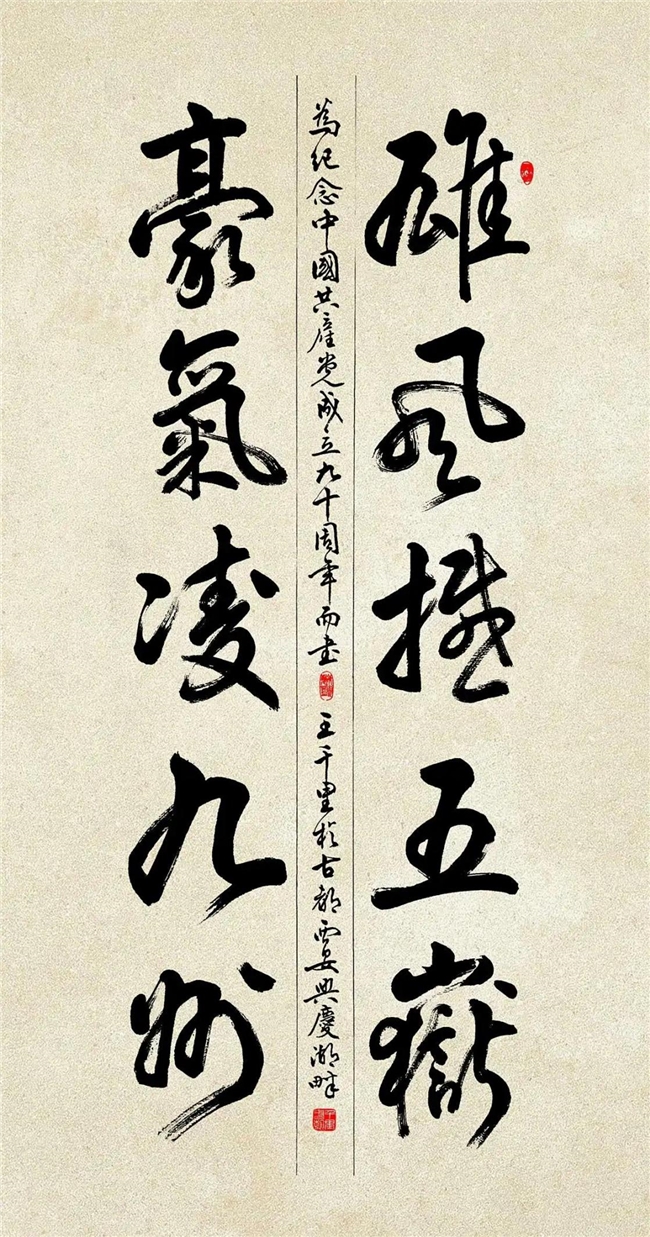 雄風撼五嶽
為紀念中國共產党成立九十周年而書 王千里於古都西安興慶湖畔
豪氣凌九州